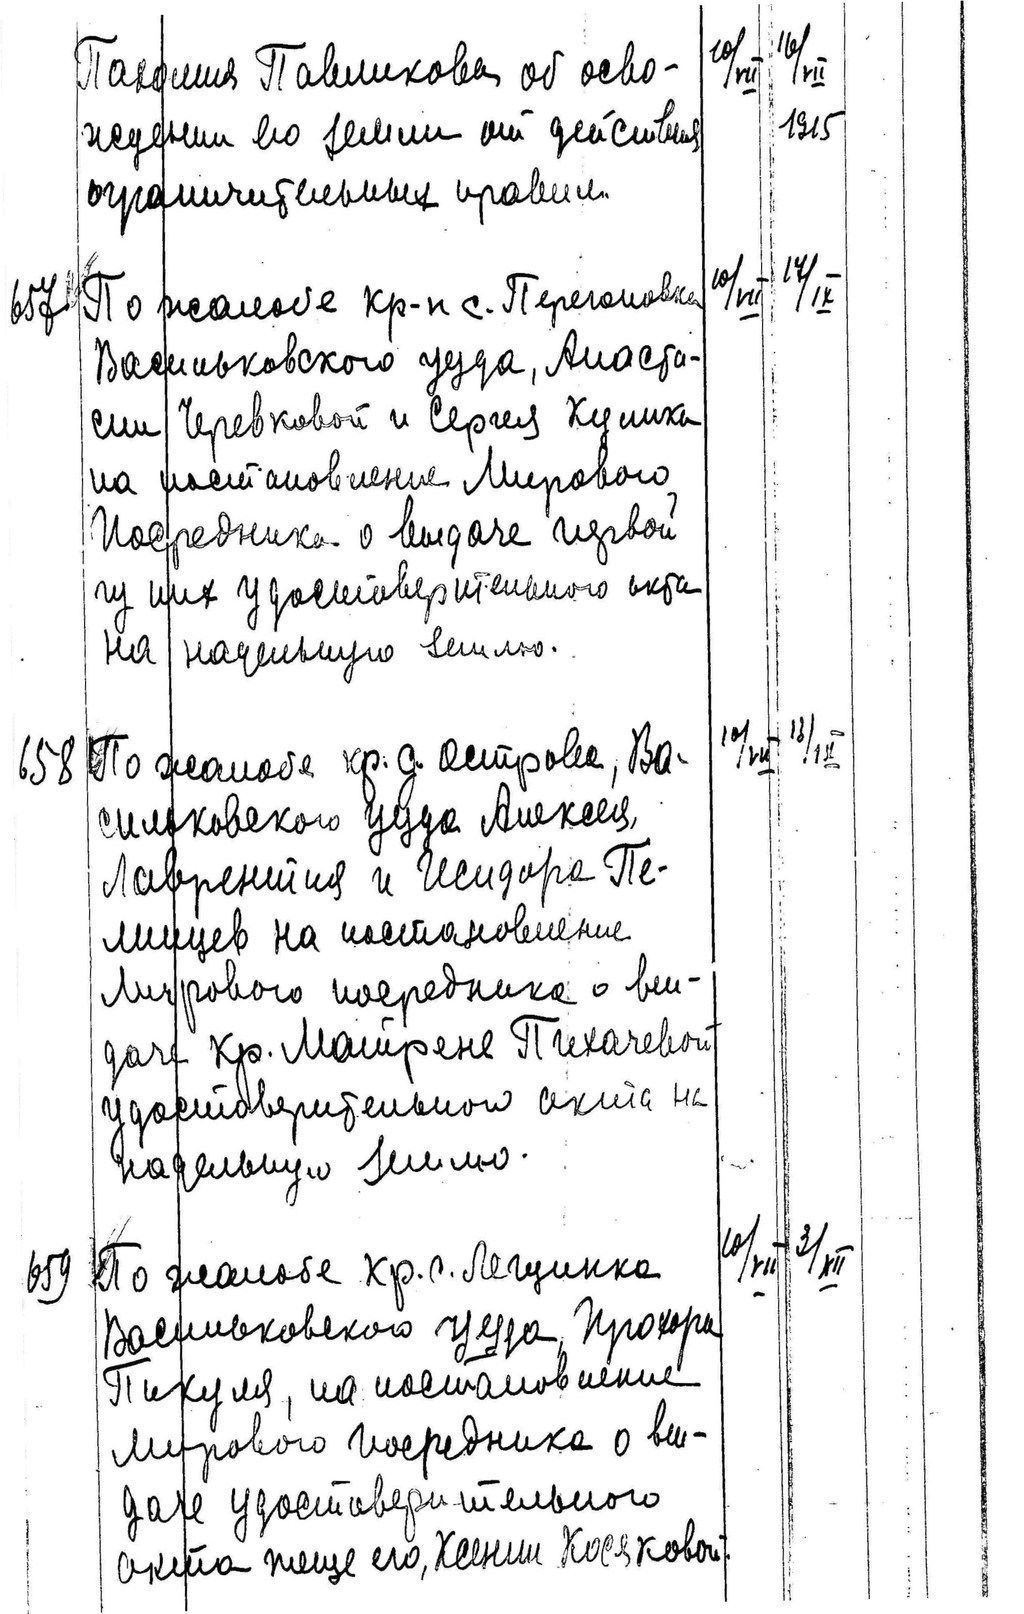 Пахомия Павликова об осво- 10/VII 16/VII
ждении его земли от действия 1915
ограничительных правил.
657 По жалобе кр-н с. Перегоновка 10/VII 17/IX
Васильковского уезда, Анаста-
сии Черевковой и Сергея Кулика
на постановление Мирового
Посредника о выдаче первой
из них удостоверительного акта
на надельную землю.
658 По жалобе кр. д. Острова, Ва- 10/VII 18/IX
сильковского уезда Алексея,
Лаврентия и Исидора Пе-
Мирового посредника о вы-
даче кр. Матрене Пихачевой
удостоверительного акта на
надельную землю.
659 По жалобе кр. с. Лещинка 10/VII 3/XII
Васильковского уезда, Прохора
Пикуля, на постановление
Мирового Посредника о вы-
даче удостоверительного
акта жене его, Ксении Косяковой.